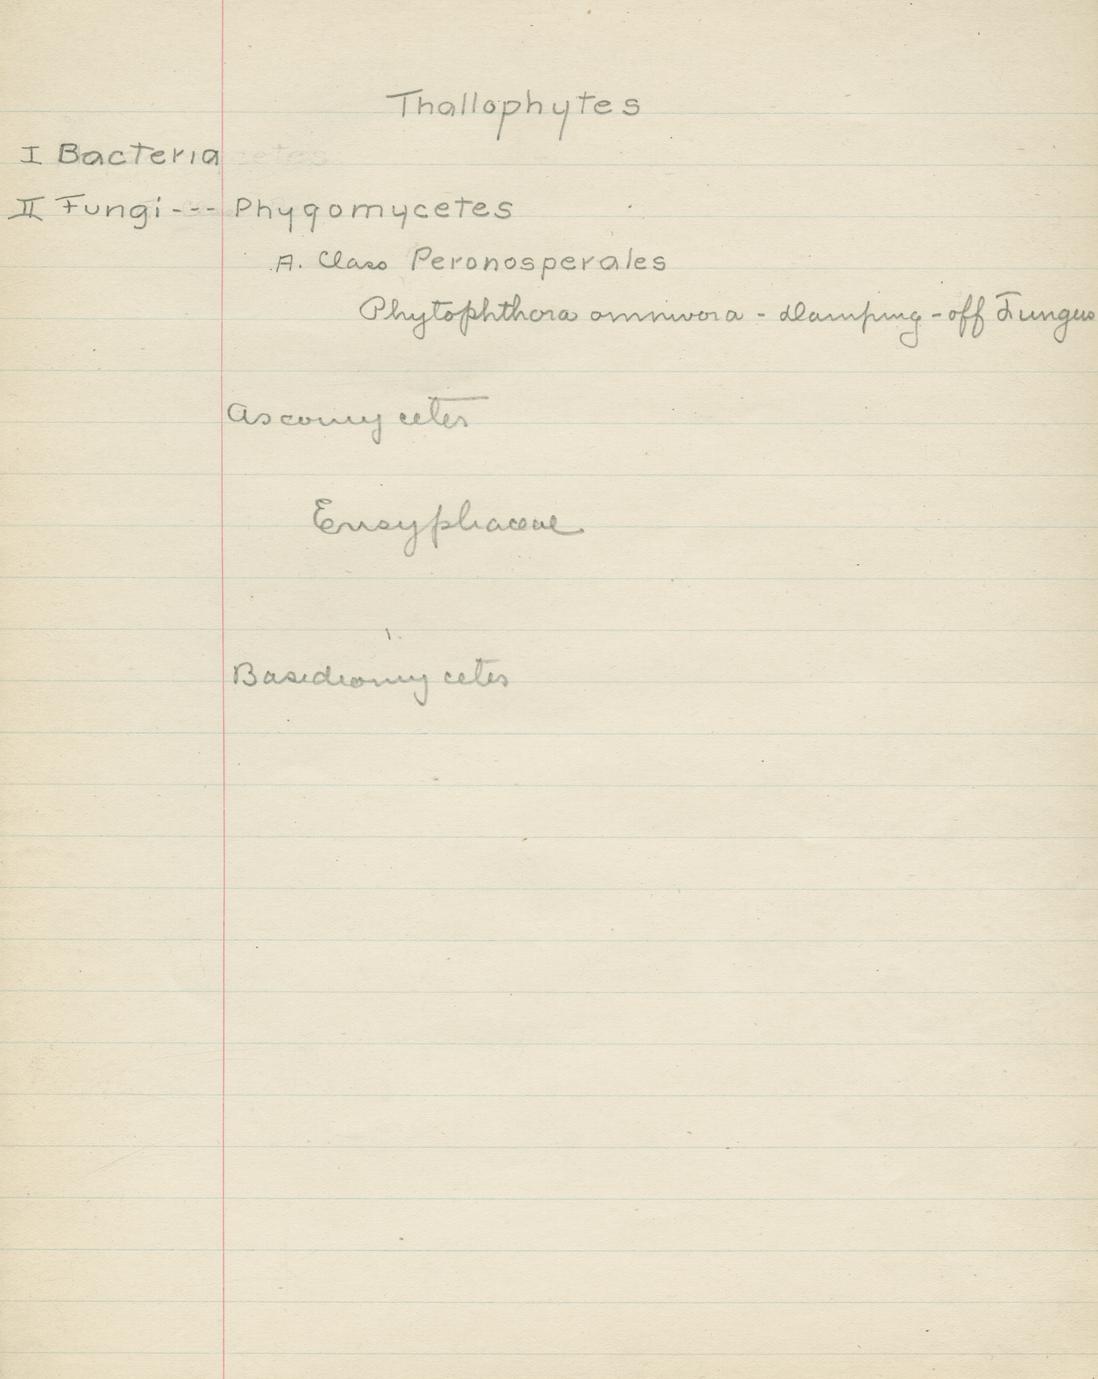 Thallophytes
I Bacteria
II Fungi --- Phygomycetes
A. Class Peronosperales
Phytophthora omnivora - damping-off Fungus
Ascomycetes
Erisyphaceae
Basidiomycetes